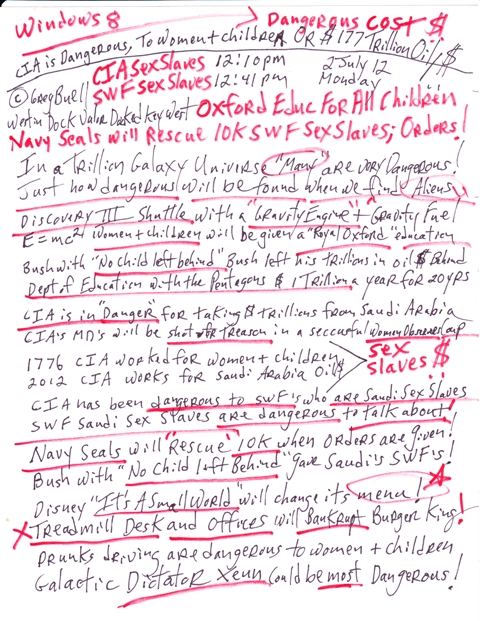 Windows 8 Dangerous cost $
CIA is Dangerous, To Women + children OR $177 Trillion Oil $
CIA Sex Slaves 12:10pm 2 July 12
SWF Sex Slaves 12:41pm Monday
© Greg Buell
Wertin Dock Value Docked Key West Oxford Educ For All Children
Navy Seals will Rescue 10K SWF Sex Slaves; Orders!
In a Trillion Galaxy Universe "Many" are very Dangerous!
Just how dangerous will be found when we find Aliens
Discovery III Shuttle with a "Gravity Engine" + Gravity Fuel
E=mc² Women + children will be given a "Royal Oxford" education
Bush with "No child left behind" Bush left his trillions in oil $ Behind
Dept of Education with the Pentagons $1 Trillion a year for 20 yrs
CIA is in "Danger" for taking $ trillions from Saudi Arabia
CIA's MD's will be shot for Treason in a seccusful Women Observers coup
1776 CIA worked for women + children
2012 CIA works for Saudi Arabia Oil $ Sex Slaves $
CIA has been dangerous to SWF's who are Saudi Sex Slaves
SWF Saudi Sex Slaves are dangerous to talk about!
Navy Seals will "Rescue" 10K when orders are given!
Bush with "No Child left Behind" gave Saudi's SWF's!
Disney "It's A Small World" will change its menu!
X Treadmill Desk and Offices will Bankrupt Burger King!
Drunks driving are dangerous to women + children
Galactic Dictator Xenu could be most Dangerous!